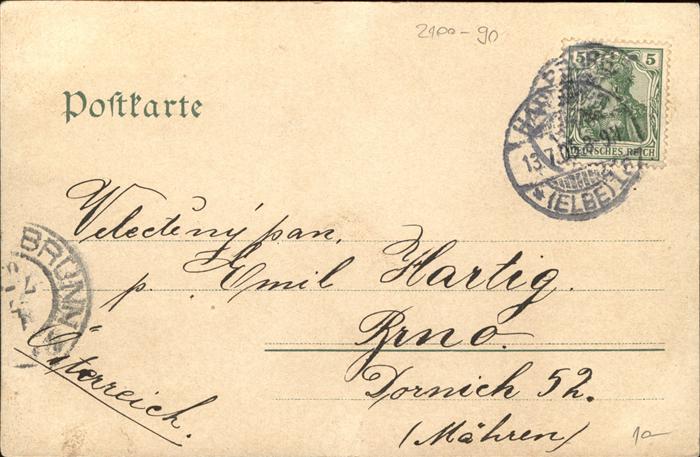 2100-90
Postkarte
5 5
DEUTSCHES REICH
13.7.05
(ELBE)
BRÜNN
Velectěný pan,
p. Emil Hartig.
Brno.
Dornich 52.
(Mähren)
Österreich.
10-